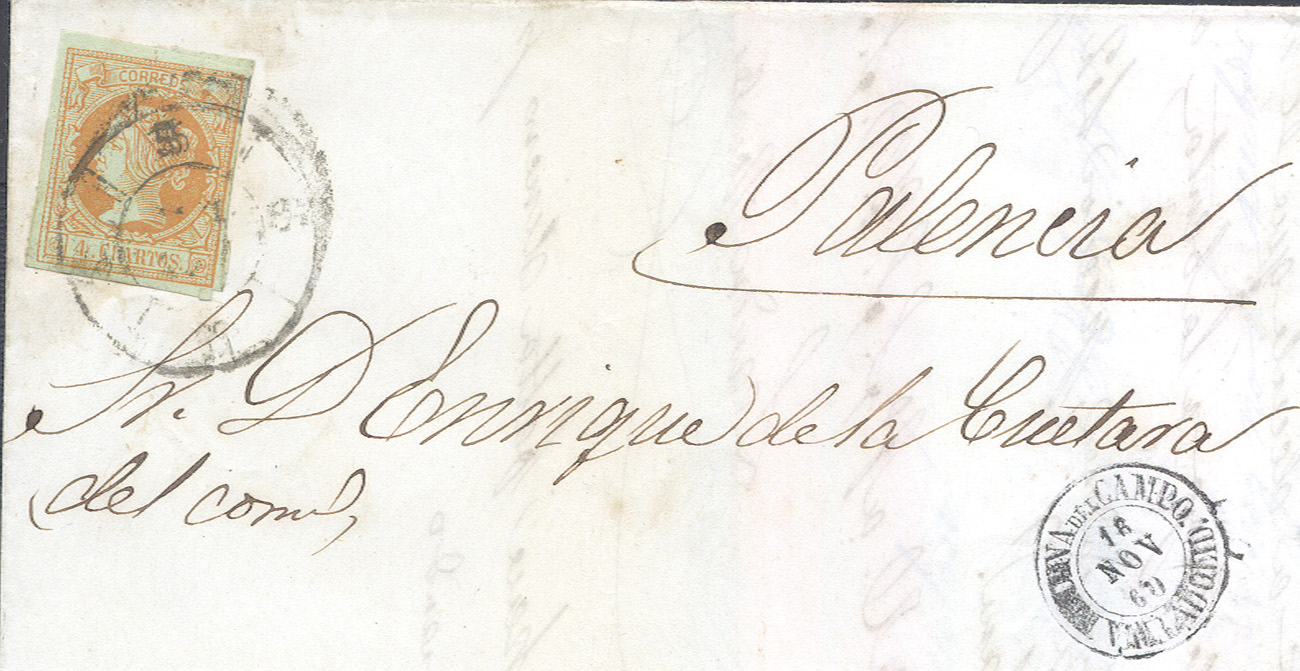 CORREOS
4 CUARTOS.
Palencia
Sr. D Enrique de la Cuetara
del com.º
MEDINA DEL CAMPO.
18
NOV
60
VALLADOLID.